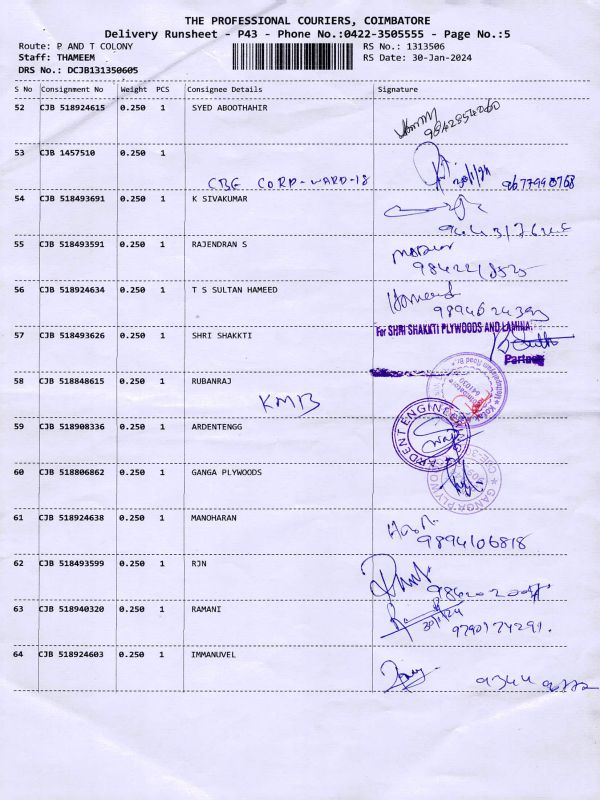 THE PROFESSIONAL COURIERS, COIMBATORE
Delivery Runsheet - P43 - Phone No.:0422-3505555 - Page No.:5
Route: P AND T COLONY
RS No.: 1313506
Staff: THAMEEM
RS Date: 30-Jan-2024
DRS No.: DCJB131350605
S No Consignment No Weight PCS Consignee Details Signature
52 CJB 518924615 0.250 1 SYED ABOOTHAHIR
53 CJB 1457510 0.250 1
CBE CORP-WARD-18 30/1/24
54 CJB 518493691 0.250 1 K SIVAKUMAR
55 CJB 518493591 0.250 1 RAJENDRAN S
56 CJB 518924634 0.250 1 T S SULTAN HAMEED
Hameed
57 CJB 518493626 0.250 1 SHRI SHAKKTI
For SHRI SHAKKTI PLYWOODS AND LAMINA
Partner
58 CJB 518848615 0.250 1 RUBANRAJ
KMB
59 CJB 518908336 0.250 1 ARDENTENGG
ARDENT ENGINEERING
60 CJB 518806862 0.250 1 GANGA PLYWOODS
GANGA PLYWOODS
61 CJB 518924638 0.250 1 MANOHARAN
9894106818
62 CJB 518493599 0.250 1 RJN
63 CJB 518940320 0.250 1 RAMANI
30/1/24 9790174291.
64 CJB 518924603 0.250 1 IMMANUVEL